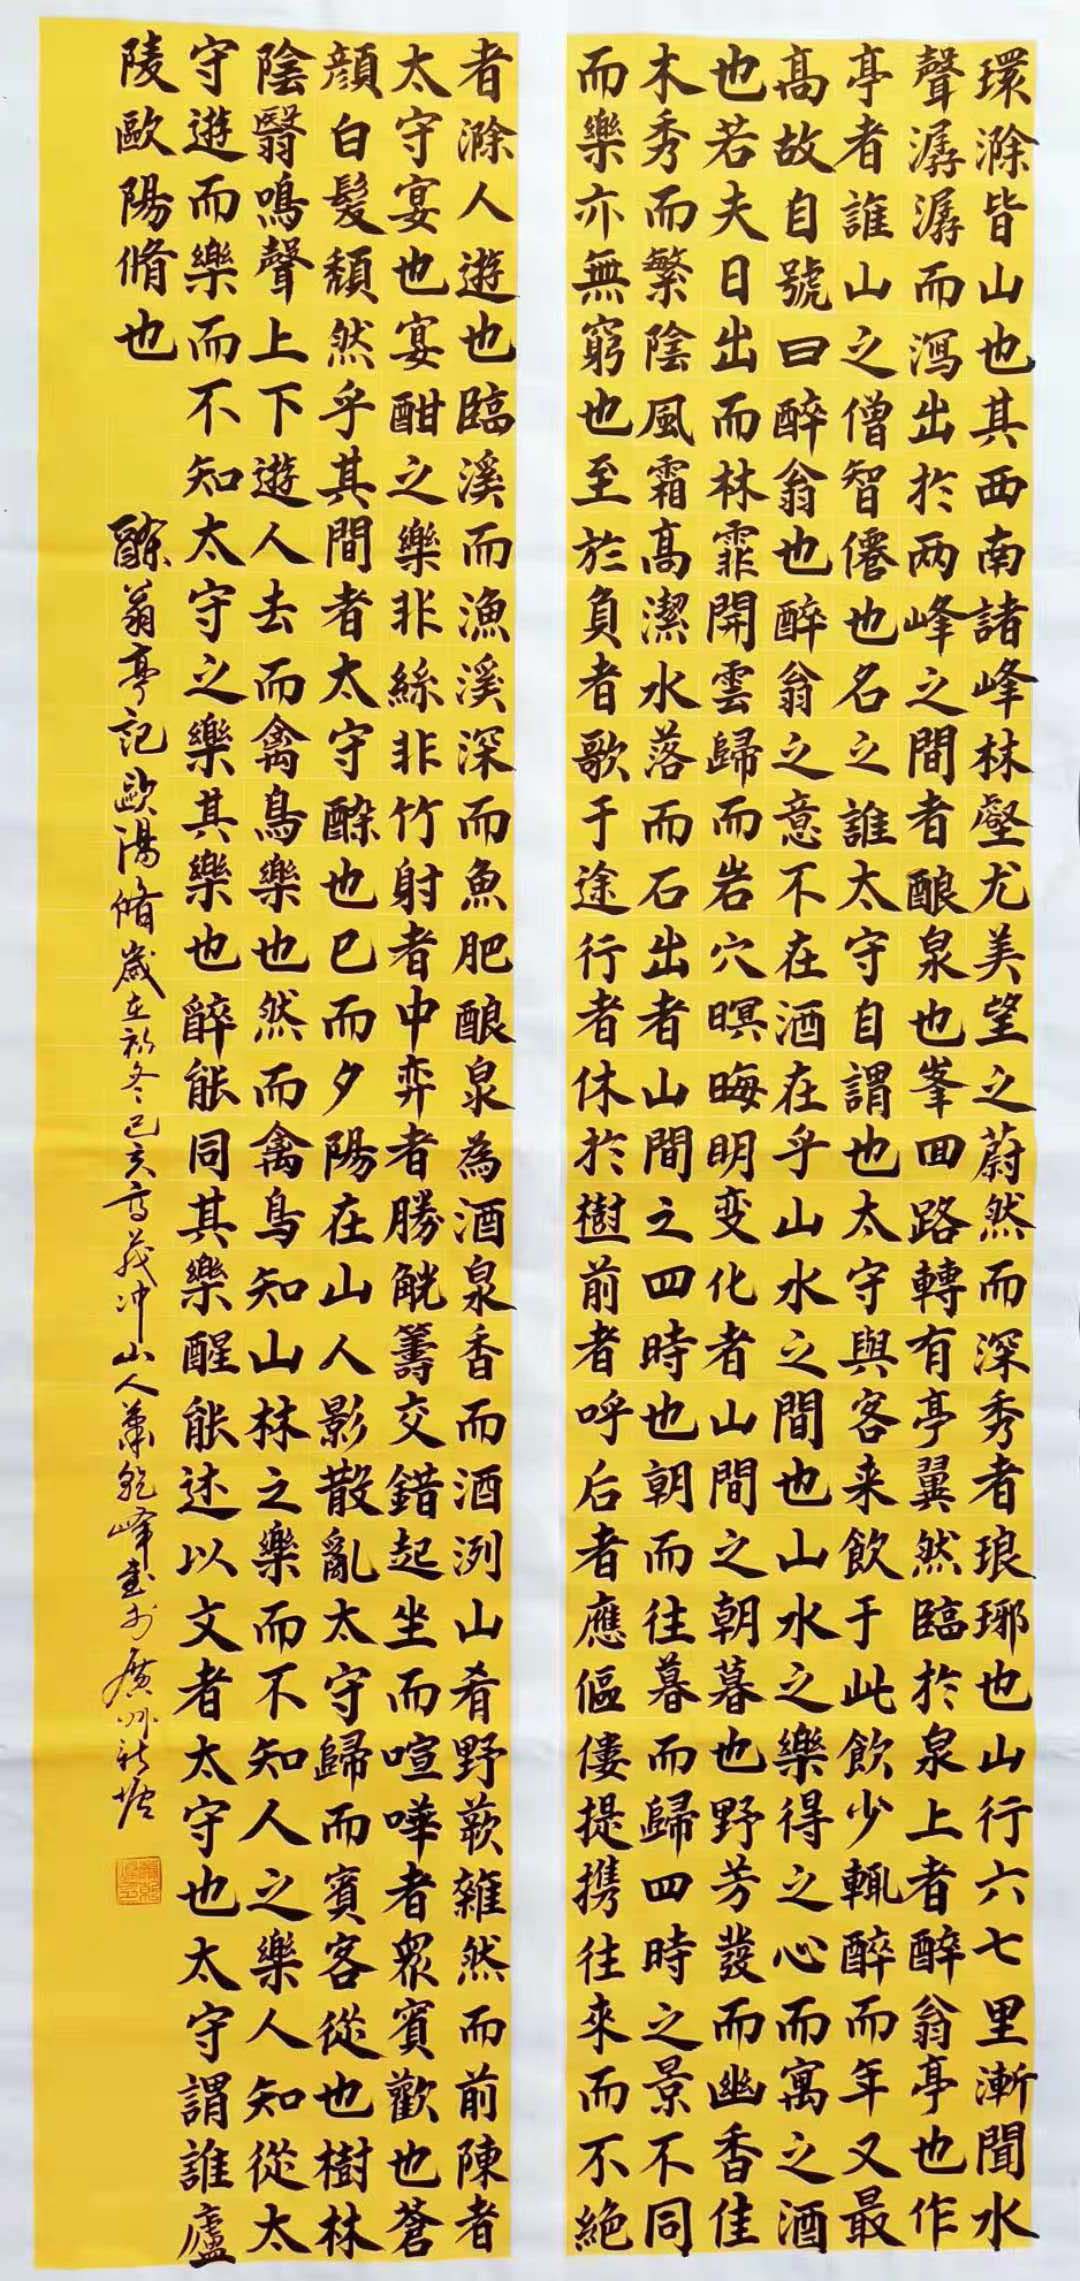 環滁皆山也其西南諸峰林壑尤美望之蔚然而深秀者琅琊也山行六七里漸聞水
聲潺潺而瀉出於两峰之間者酿泉也峯回路轉有亭翼然臨於泉上者醉翁亭也作
亭者誰山之僧智僊也名之誰太守自謂也太守與客来飲于此飲少輒醉而年又最
高故自號曰醉翁也醉翁之意不在酒在乎山水之間也山水之樂得之心而寓之酒
也若夫日出而林霏開雲歸而岩穴暝晦明变化者山間之朝暮也野芳發而幽香佳
木秀而繁陰風霜高潔水落而石出者山間之四時也朝而往暮而歸四時之景不同
而樂亦無窮也至於負者歌于途行者休於樹前者呼后者應傴僂提携往來而不絶
者滁人遊也臨溪而漁溪深而魚肥酿泉為酒泉香而酒洌山肴野蔌雜然而前陳者
太守宴也宴酣之樂非絲非竹射者中弈者勝觥籌交錯起坐而喧嘩者衆賓歡也蒼
顔白髮頽然乎其間者太守醉也已而夕陽在山人影散亂太守歸而賓客從也樹林
陰翳鳴聲上下遊人去而禽鳥樂也然而禽鳥知山林之樂而不知人之樂人知從太
守遊而樂而不知太守之樂其樂也醉能同其樂醒能述以文者太守也太守謂誰廬
陵歐陽脩也
醉翁亭記歐陽脩歲在初冬己亥高義冲山人蕭乾峰書於廣州新塘